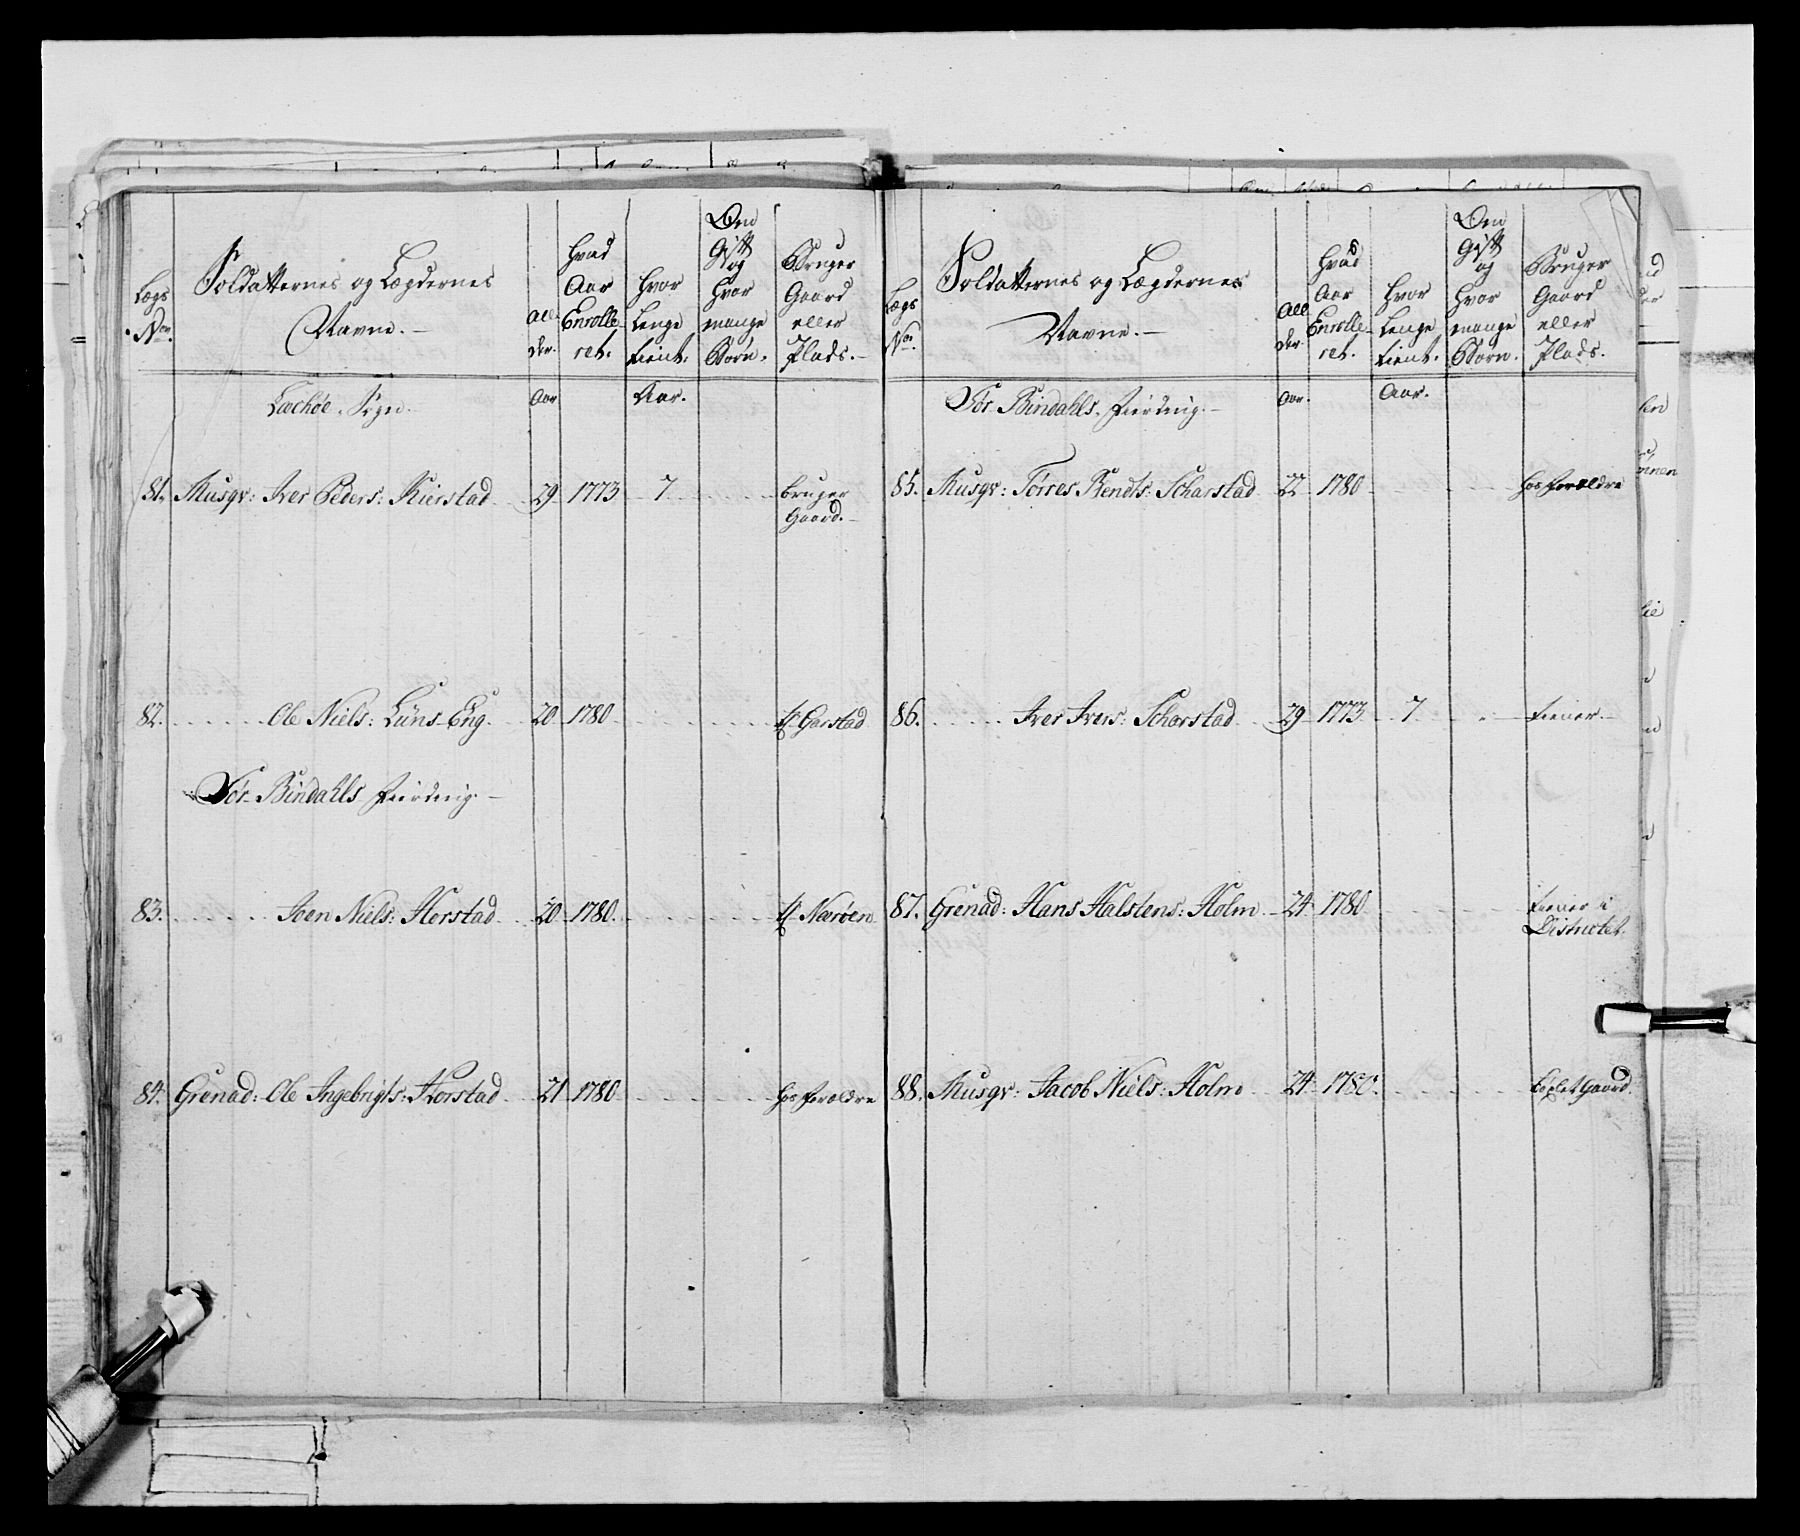 Lægs No:
Soldatternes og Lægdernes Navne. —
All der.
Hvad Aar Enrolleret.
Hvor Lenge tient.
Om Gift og Hvor mange Børn.
Bruger Gaard eller Plads. —
Lechøe. Sogn.
Aar
Aar.
81. Musqr: Iver Peders: Kierstad 29 1773 7 bruger
Gaard. —
82. Ole Niels: Lüns Eng. 20 1780 Garstad
Sør Bindahls Fierding. —
83. Joen Niels: Horstad 20 1780. Nærøen
84. Grenad: Ole Ingebrigts: Horstad 21 1780 hos Forældre
Lægs No:
Soldatternes og Lægdernes Navne. —
All der.
Hvad Aar Enrolleret.
Hvor Lenge tient.
Om Gift og Hvor mange Børn.
Bruger Gaard eller Plads.
Sør Bindahls. Fierding. —
Aar.
Aar.
85. Musqr: Tørres Bendts: Scharstad 22 1780 hos Forældre
86. Iver Ivers: Scharstad 29 1773 7 tiener. —
87. Grenad: Hans Halstens: Holm 24 1780 tiener i
Districtet.
88. Musqr: Jacob Niels: Holm 24 1780. Gaard.